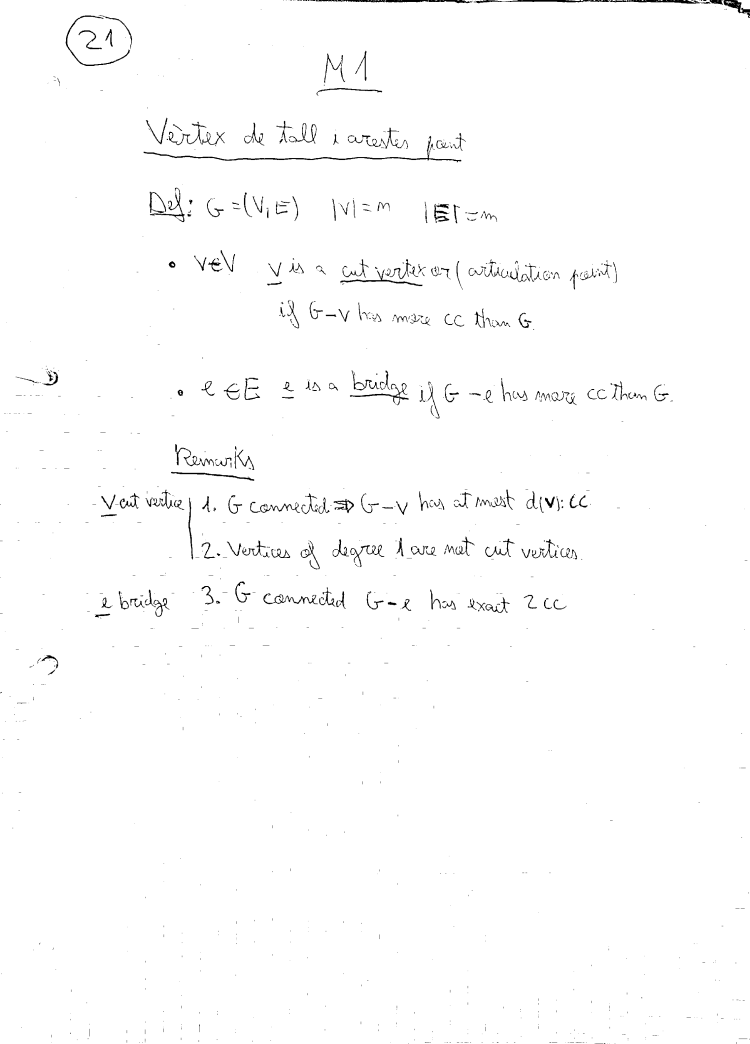 21
M1
Vèrtex de tall i arestes pont
Def: G=(V,E) |V|=n |E|=m
• v∈V v is a cut vertex or (articulation point)
if G-v has more cc than G.
• e∈E e is a bridge if G-e has more cc than G.
Remarks
v cut vertice 1. G connected ⇒ G-v has at most d(v): CC
2. Vertices of degree 1 are not cut vertices.
e bridge 3. G connected G-e has exact 2 cc